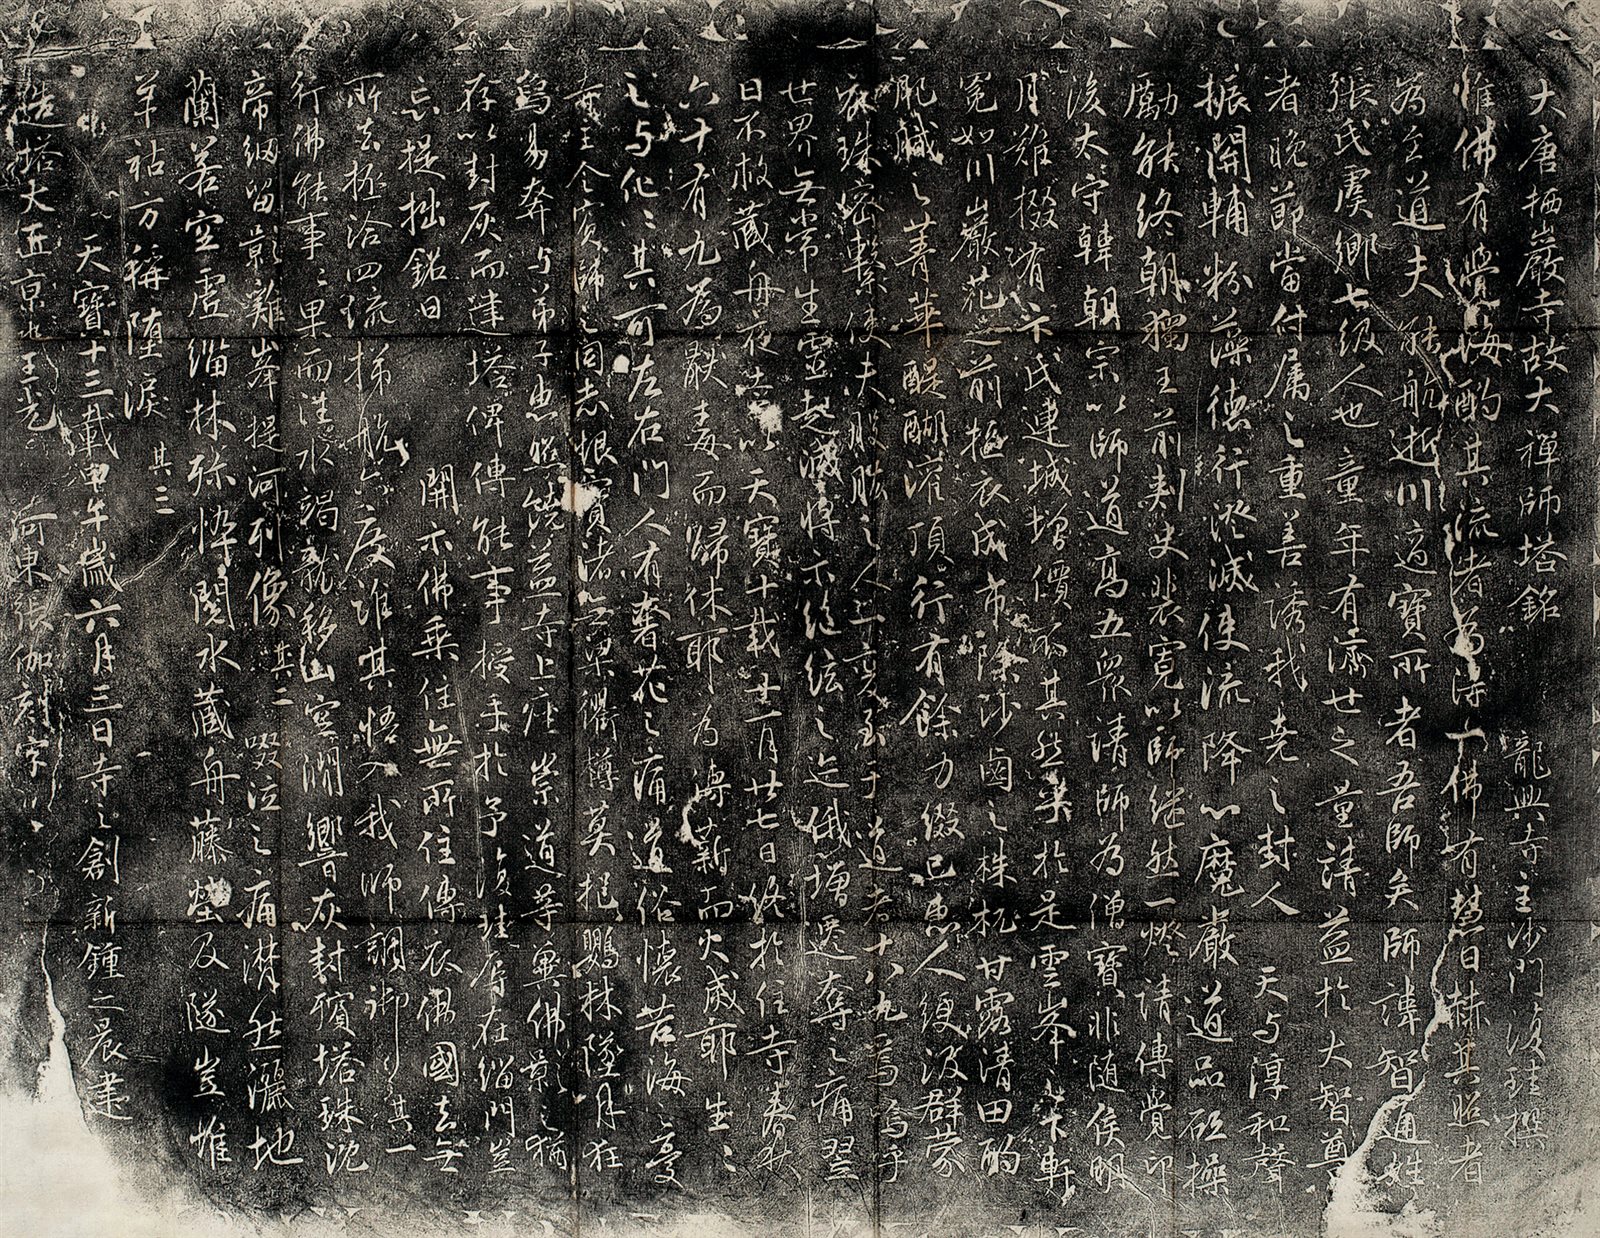 大唐栖巖寺故大禪師塔銘　龍興寺主沙門復珪撰
惟佛有覺海酌其流者為得一佛有慧日赫其照者
為至道夫能航逝川適寶所者吾師矣師諱智通姓
張氏虞鄉七級人也童年有濟世之量請益於大智尊
者晚節當付屬之重善誘我堯之封人　天与淳和聲
振關輔粉藻德行澄滅使流降心魔嚴道品砥操
勵能終朝獨王前刺史裴寬以師繼然一燈請傳覺印
後太守韓朝宗以師道高五眾請師為僧寶非隨侯明
月難掇卞氏連城增價不其然乎於是雲峯之下軒
冕如川巖花之前摳衣成市除沙鹵之株杌甘露清田酌
肥膩之菁華醍醐灌頂行有餘力綴已惠人綆汲群蒙
衣珠密繫使夫股肱之人上变至于道者十八九焉嗚乎
世界無常生靈起滅將示絃之迄俄增遷奪之痛翌
日不救藏舟夜去以天寶十載廿一月廿七日終於住寺春秋
六十有九為厭毒而歸休耶為薪而火滅耶生之
之与化之其可左右門人有奢花之痛道俗懷苦海之憂
寺主令賓師之同志恨寶渚無梁衢樽莫挹鸚林墜月狂
焉易奔与弟子惠照饒益寺上座崇道等興佛影之猶
存以封灰而建塔俾傳能事授手於予復珪辱在緇門豈
忘提拙銘曰　開示佛乘住無所住傳衣佛國去無
所去拯洽四流梯航六度誰其悟入我師調御其一
行佛能事事畢而涅水竭龍移山空澗響灰封殯塔珠沈
帝網留影雞峯提河列像其二啜泣之痛潸然灑地
蘭若空虛緇林殄悴閱水藏舟藤堅及隧豈惟
羊祜方稱墮淚其三
天寶十三載甲午歲六月三日寺之創新鍾之晨建
造塔大匠京兆王光　河東張伽刻字